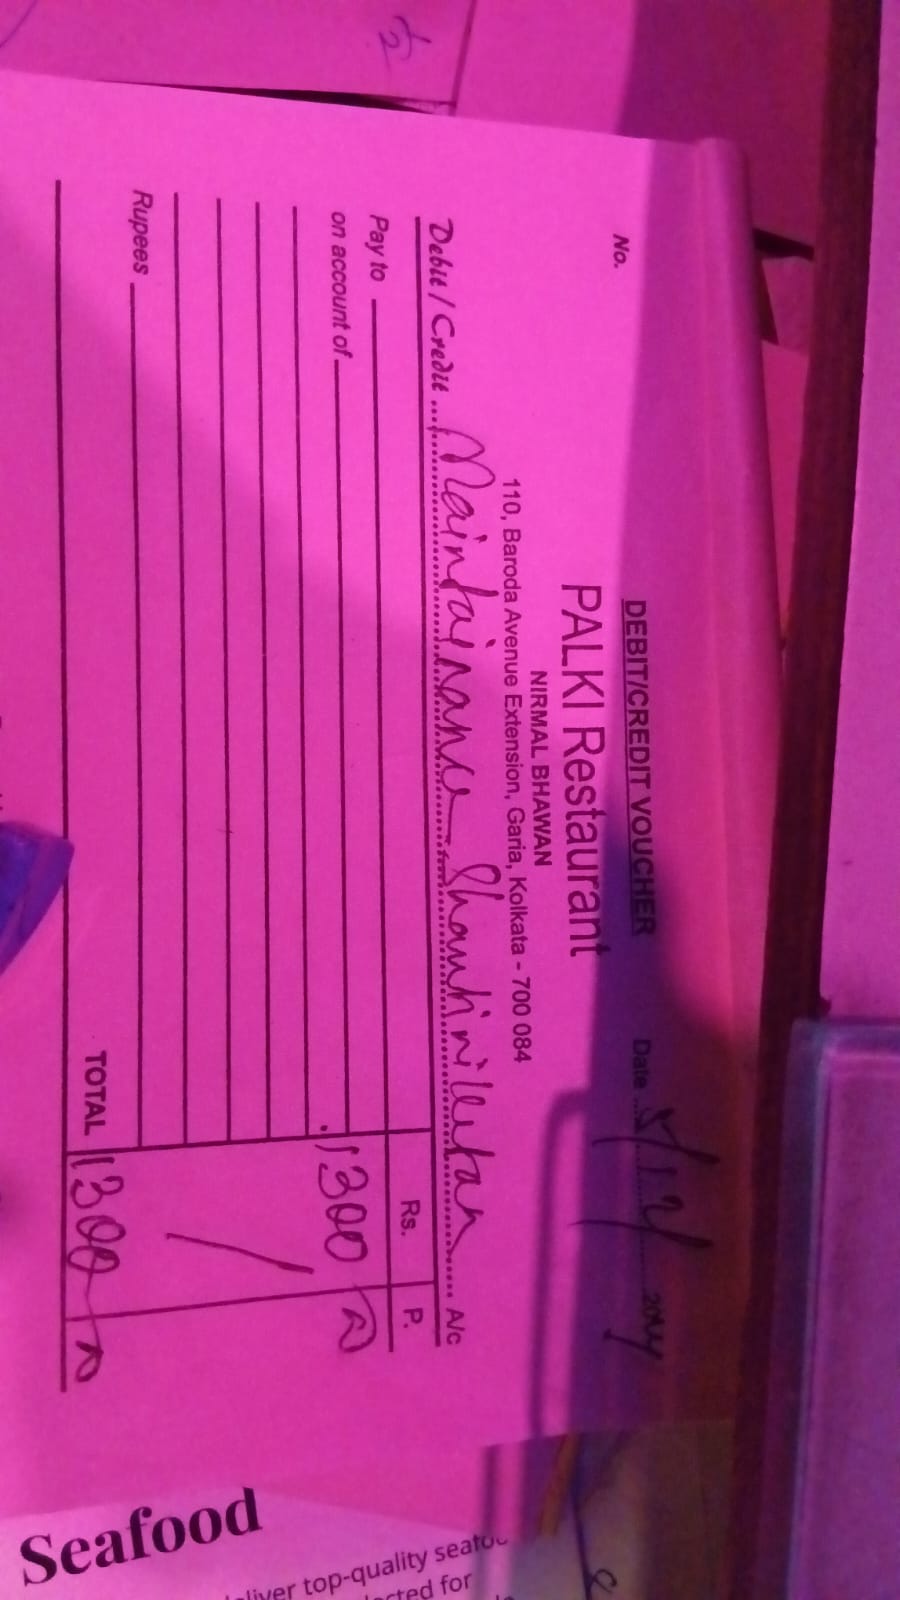 DEBIT/CREDIT VOUCHER
No.
Date 5/12/2024
PALKI Restaurant
NIRMAL BHAWAN
110, Baroda Avenue Extension, Garia, Kolkata - 700 084
Debit / Credit Maintainance Shantiniketan A/c
Pay to
Rs. P.
on account of
1300
Rupees
TOTAL 1300
Seafood
top-quality
for